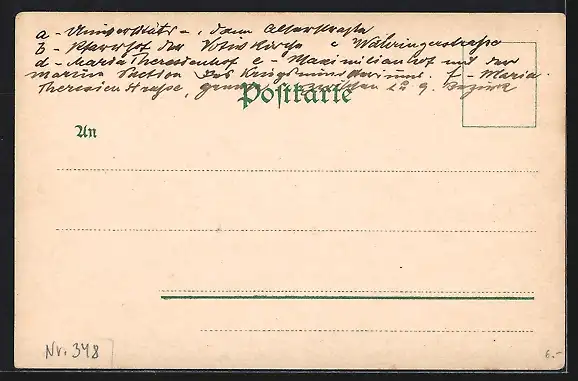 a - Universitäts-, dann Alserstraße
b - Pfarrhof der Votivkirche c Währingerstraße
d - Maria Theresienhof e - Maximilianhof mit der
marine Sektion des Kriegsministeriums. f - Maria-
Theresien Straße, 9. Bezirk
Postkarte
An
Nr. 348
6.-